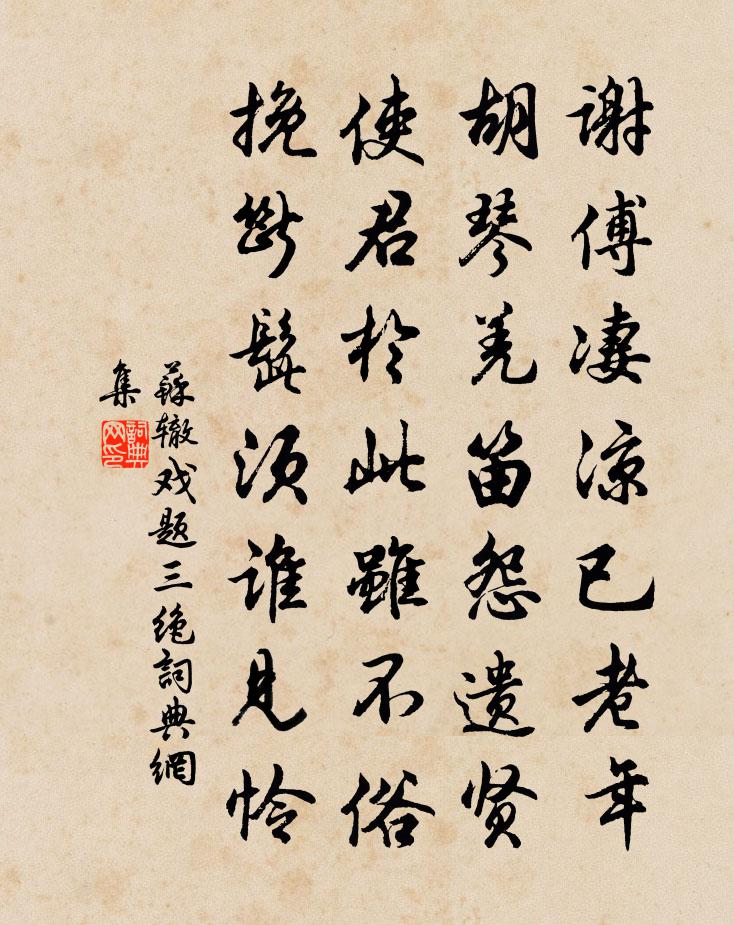 谢傅凄凉已老年
胡琴羌笛怨遗贤
使君於此虽不俗
挽断髯须谁见怜
蘇辙戏题三绝詞典網
集
詞典
网印